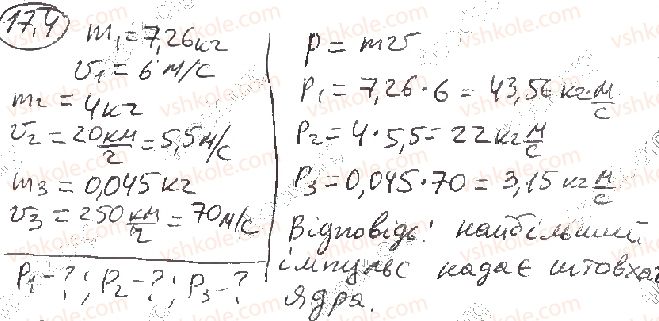 17.4
m₁=7,26кг
v₁=6м/с
m₂=4кг
v₂=20км/г=5,5м/с
m₃=0,045кг
v₃=250км/г=70м/с
P₁-?; P₂-?; P₃-?
p=mv
P₁=7,26·6=43,56кг м/с
P₂=4·5,5=22кг м/с
P₃=0,045·70=3,15кг м/с
Відповідь: найбільший
імпульс надає штовхач
ядра.
vshkole.com